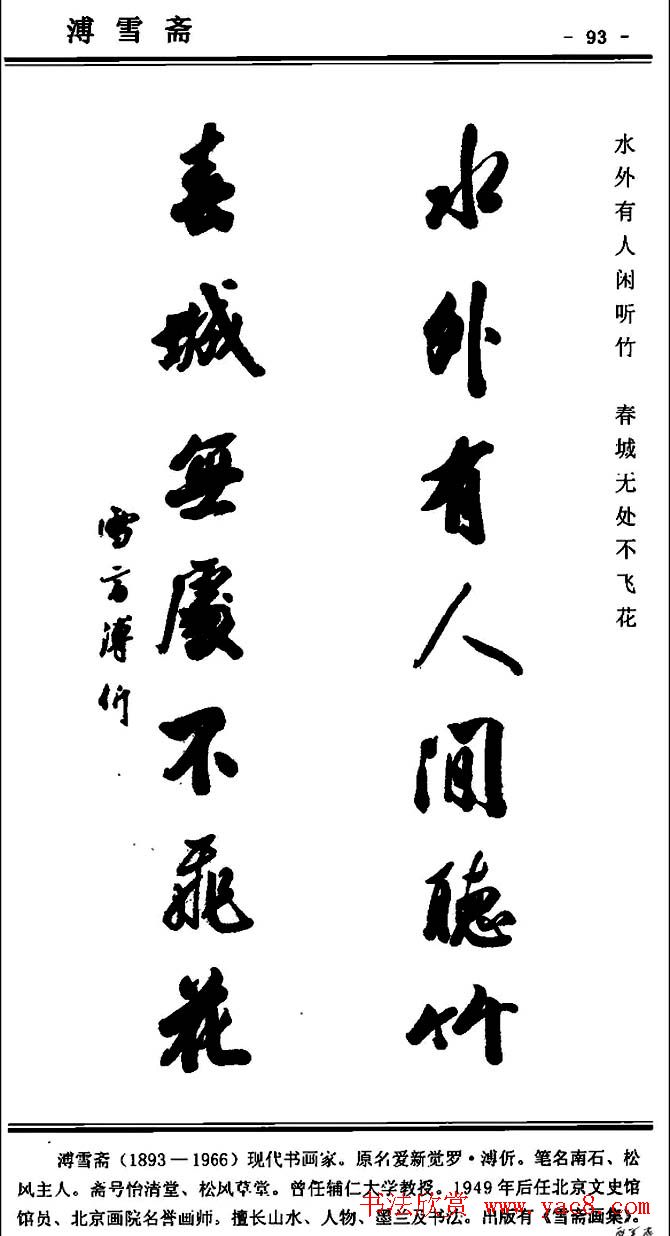 溥雪斋
- 93 -
水外有人闲听竹 春城无处不飞花
水外有人间聽竹
春城無處不飛花
雪斋溥伒
溥雪斋（1893—1966）现代书画家。原名爱新觉罗·溥伒。笔名南石、松
风主人。斋号怡清堂、松风草堂。曾任辅仁大学教授。1949年后任北京文史馆
馆员、北京画院名誉画师。擅长山水、人物、墨兰及书法。出版有《雪斋画集》。
书法欣赏 www.yac8.com